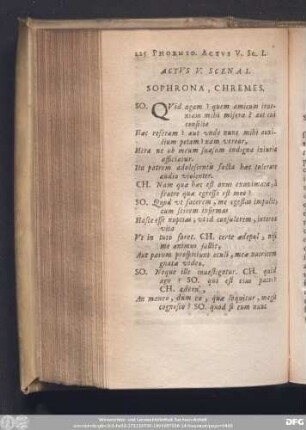 225 PHORMIO. ACTUS V. SC. I.
ACTVS V. SCENA I.
SOPHRONA, CHREMES.
SO. QVid agam? quem amicum inve-
niam mihi misera? aut cui
consilia
Hæc referam? aut unde nunc mihi auxi-
lium petam? nam vereor,
Hera ne ob meum suasum indigna injuria
afficiatur.
Ita patrem adolescentis facta hæc tolerare
audio violenter.
CH. Nam quæ hæc est anus exanimata, à
fratre quæ egressa est meo?
SO. Quod ut facerem, me egestas impulit,
cum scirem infirmas
Hasce esse nuptias, ut id consulerem, interea
vita
Vt in tuto foret. CH. certe ædepol, nisi
me animus fallit,
Aut parum prospiciunt oculi, meæ nutricem
gnatæ video.
SO. Neque ille investigatur. CH. quid
ago? SO. qui est ejus pater?
CH. adeo,
An maneo, dum ea, quæ loquitur, magis
cognosco? SO. quod si eum nunc